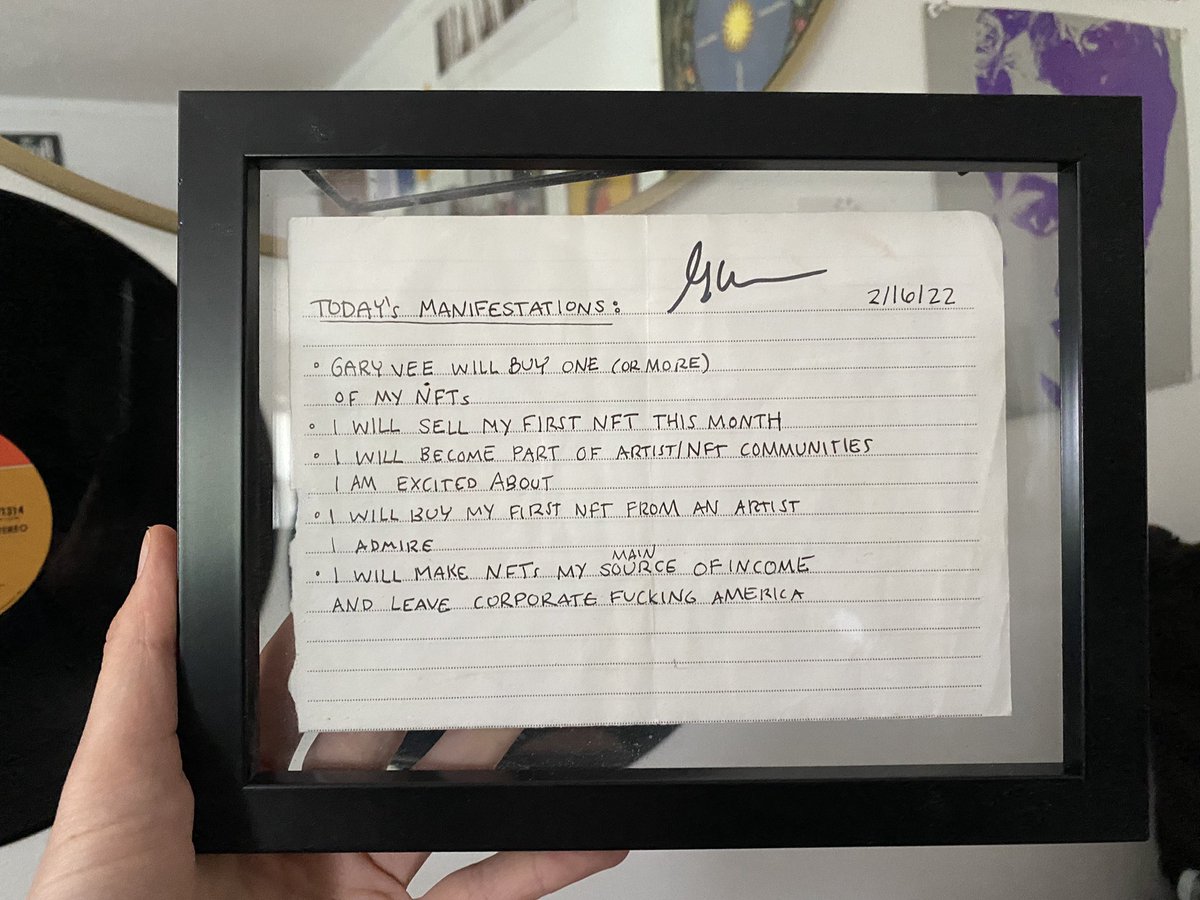 TODAY'S MANIFESTATIONS: 2/16/22
° GARY VEE WILL BUY ONE (OR MORE)
OF MY NFTs
° I WILL SELL MY FIRST NFT THIS MONTH
° I WILL BECOME PART OF ARTIST/NFT COMMUNITIES
I AM EXCITED ABOUT
° I WILL BUY MY FIRST NFT FROM AN ARTIST
I ADMIRE
° I WILL MAKE NFTs MY MAIN SOURCE OF INCOME
AND LEAVE CORPORATE FUCKING AMERICA